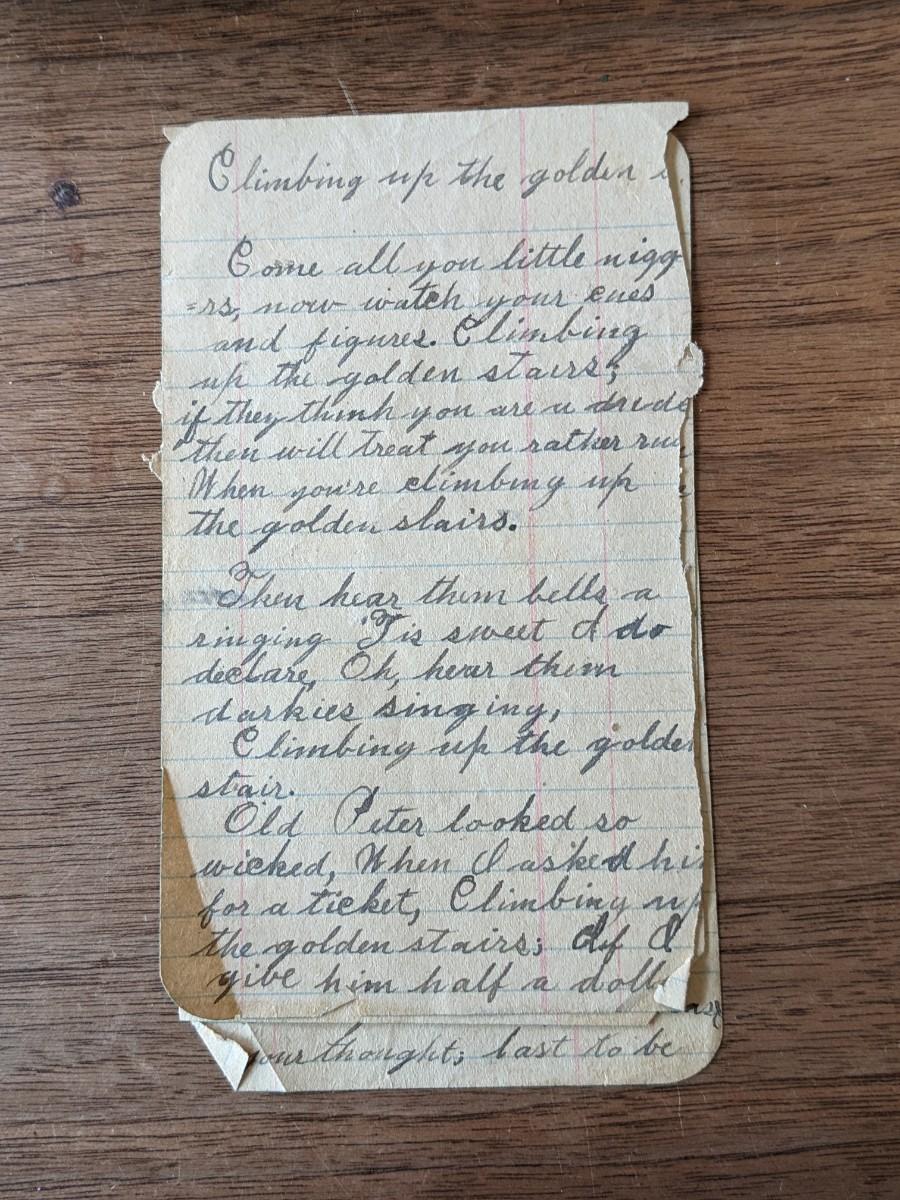 Climbing up the golden s
Come all you little nigg
=rs, now watch your cues
and figures. Climbing
up the golden stairs;
if they think you are a dude
then will treat you rather ru
When you're climbing up
the golden stairs.
Then hear them bells a
ringing 'Tis sweet I do
declare, Oh, hear them
darkies singing,
Climbing up the golden
stair.
Old Peter looked so
wicked, When I asked hi
for a ticket, Climbing up
the golden stairs; If I
give him half a doll
our thought; last to be